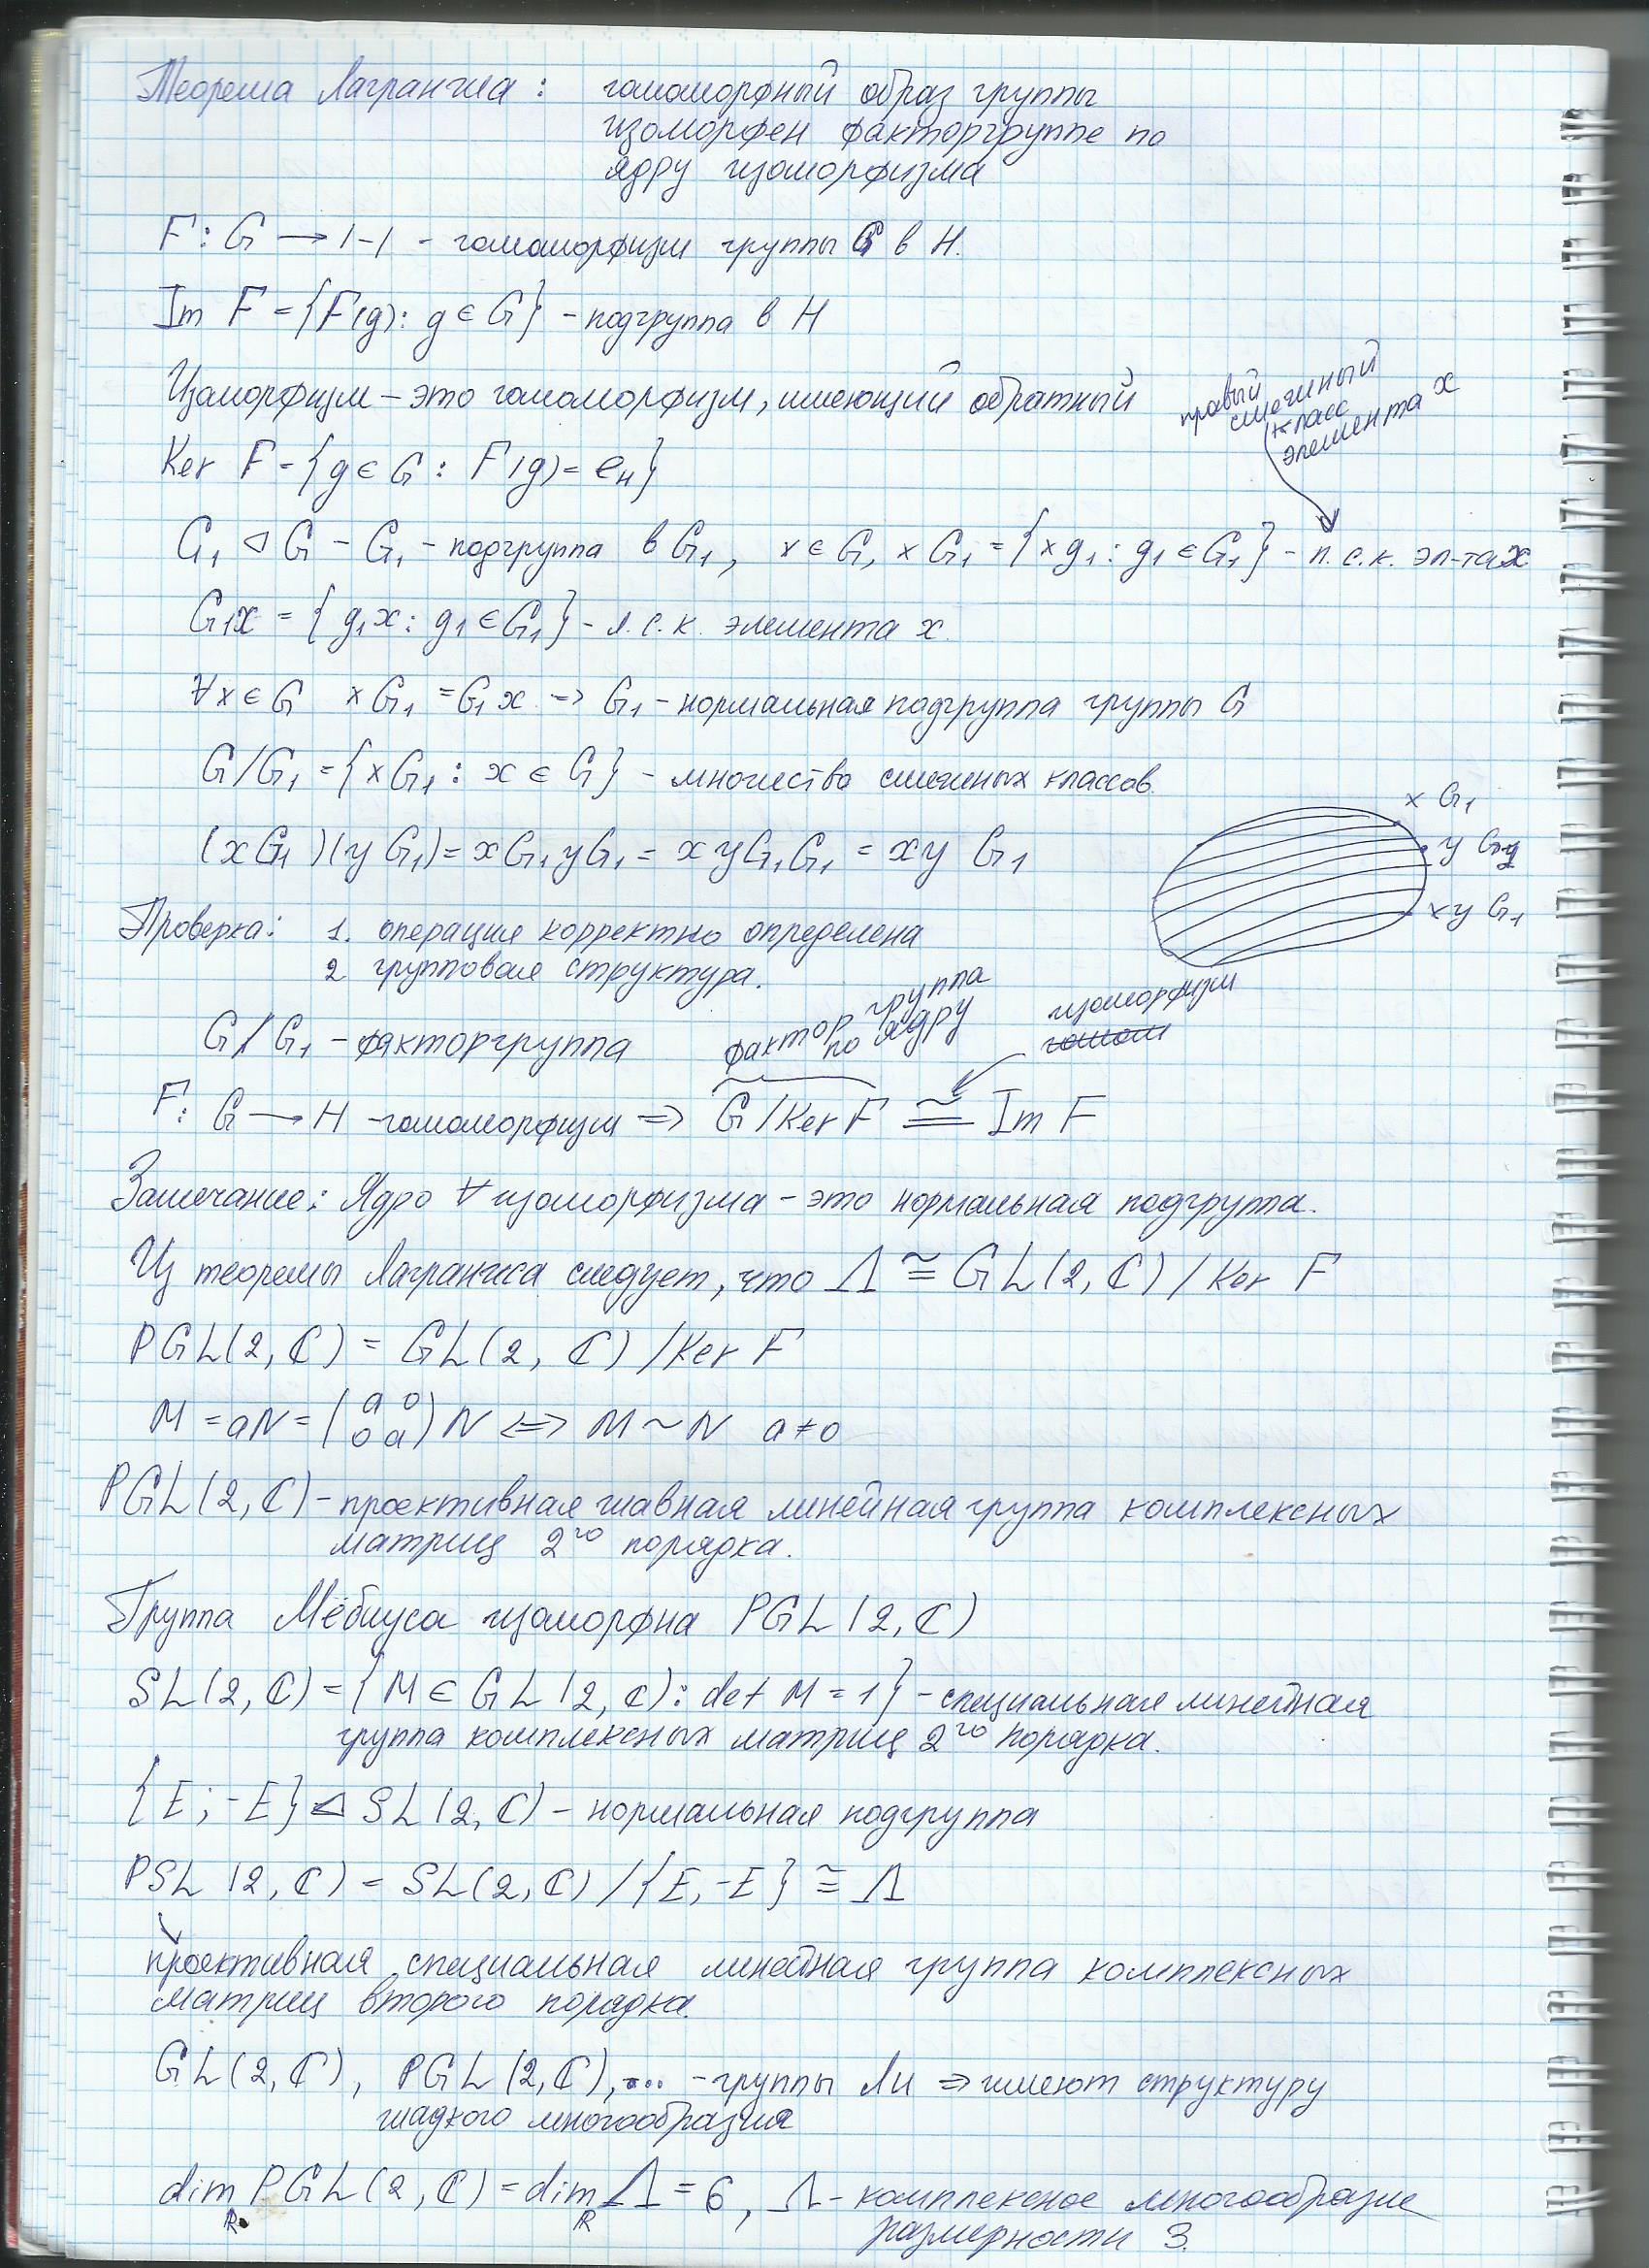 Теорема Лагранжа: гомоморфный образ группы
изоморфен факторгруппе по
ядру изоморфизма
F: G → H - гомоморфизм группы G в H.
Im F = {F(g): g ∈ G} - подгруппа в H
Изоморфизм – это гомоморфизм, имеющий обратный
правый
смежный
класс
элемента x
Ker F = {g ∈ G : F(g) = e_H}
G₁ ⊲ G - G₁ - подгруппа в G₁, x ∈ G, x G₁ = {x g₁ : g₁ ∈ G₁} - п.с.к. эл-та x
G₁x = {g₁x : g₁ ∈ G₁} - л.с.к. элемента x.
∀x ∈ G x G₁ = G₁ x => G₁ - нормальная подгруппа группы G
G/G₁ = {x G₁ : x ∈ G} - множество смежных классов.
(xG₁)(yG₁) = xG₁yG₁ = xyG₁G₁ = xy G₁
x G₁
y G₁
xy G₁
Проверка: 1. операция корректно определена
2 групповая структура.
G/G₁ - факторгруппа
фактор группа
по ядру
изоморфизм
гомом
F: G → H - гомоморфизм => G/Ker F ≅ Im F
Замечание: Ядро ∀ изоморфизма - это нормальная подгруппа.
Из теоремы Лагранжа следует, что Λ ≅ GL(2, ℂ) / Ker F
PGL(2, ℂ) = GL(2, ℂ) / Ker F
M = aN = (a 0
0 a) N <=> M ~ N a ≠ 0
PGL(2, ℂ) - проективная главная линейная группа комплексных
матриц 2го порядка.
Группа Мёбиуса изоморфна PGL(2, ℂ)
SL(2, ℂ) = {M ∈ GL(2, ℂ): det M = 1} - специальная линейная
группа комплексных матриц 2го порядка.
{E; -E} ⊲ SL(2, ℂ) - нормальная подгруппа
PSL(2, ℂ) = SL(2, ℂ) / {E, -E} ≅ Λ
проективная специальная линейная группа комплексных
матриц второго порядка.
GL(2, ℂ), PGL(2, ℂ), ... - группы Ли => имеют структуру
гладкого многообразия
dim_ℝ PGL(2, ℂ) = dim_ℝ Λ = 6, Λ - комплексное многообразие
размерности 3.